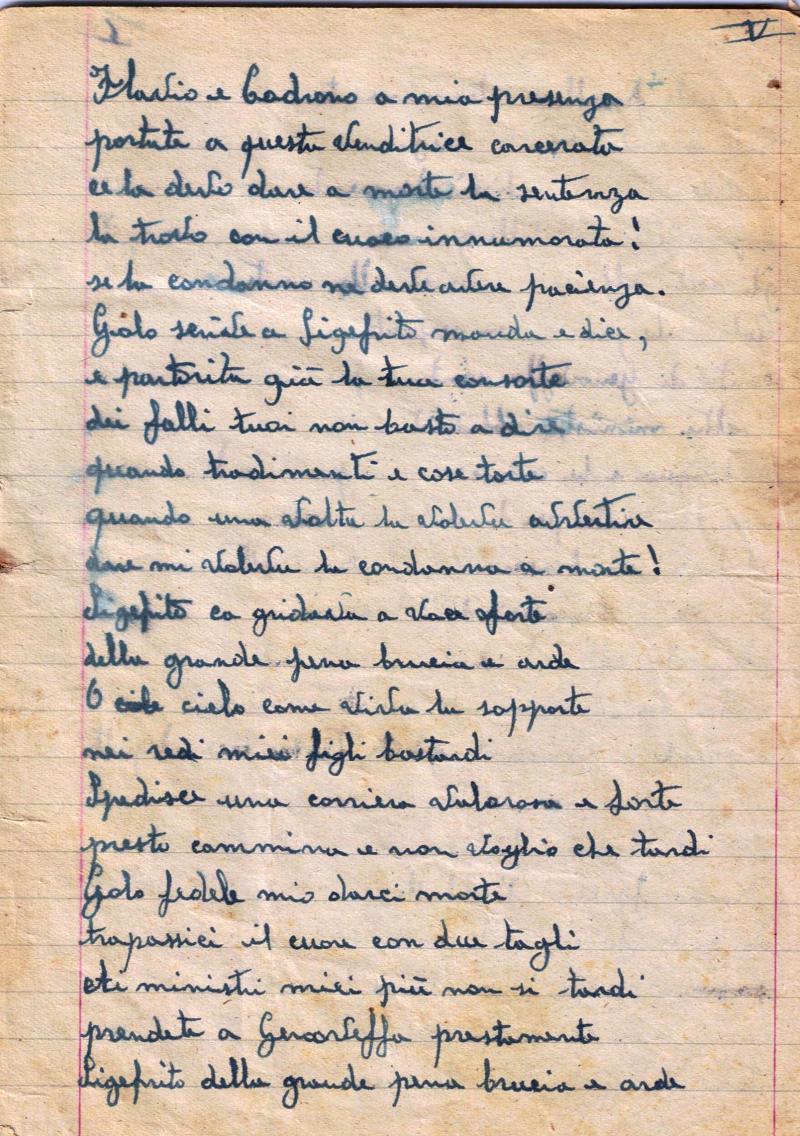 V
Flavio e Cadrono a mia presenza
portate a questa venditrice carcerata
ce la devo dare a morte la sentenza
la trovo con il cuoco innamorata!
se la condanno ne deve avere pacienza.
Golo scrive a Sigefrito manda e dice,
e partorita già la tua consorte
dei falli tuoi non basto a dire
quando tradimenti e cose torte
quando una volta la voleva advertire
dare mi voleva la condanna a morte!
Sigefrito ca gridava a voce forte
della grande pena brucia e arde
O cielo come viva la sopporte
nei redi miei figli bastardi
Spedisce una corriera valorosa e forte
presto cammina e non voglio che tardi
Golo fedele mio darci morte
trapassici il cuore con due tagli
Ai ministri miei più non si tardi
prendete a Genoveffa prestamente
Sigefrito della grande pena brucia e arde